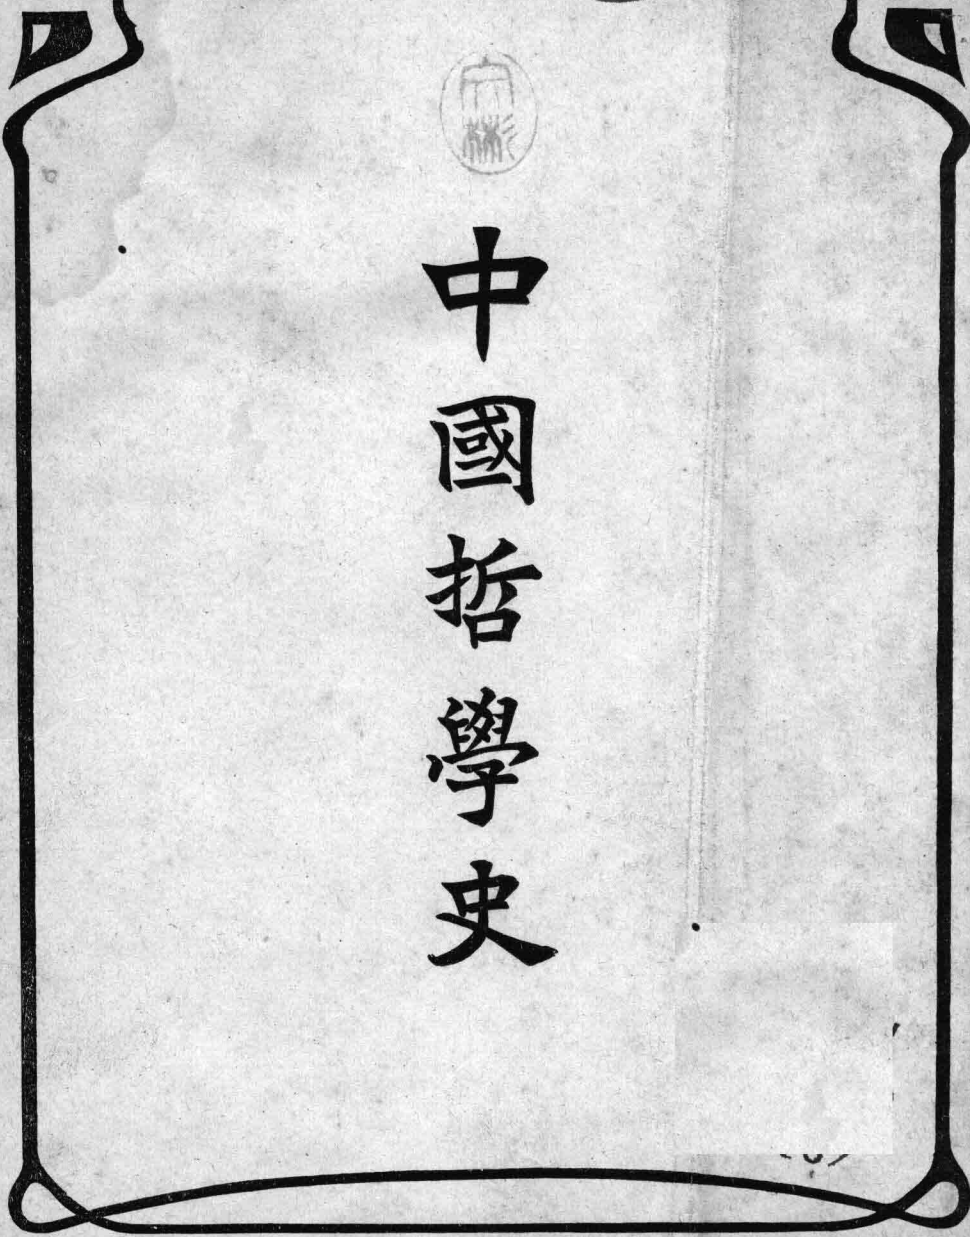 中國哲學史